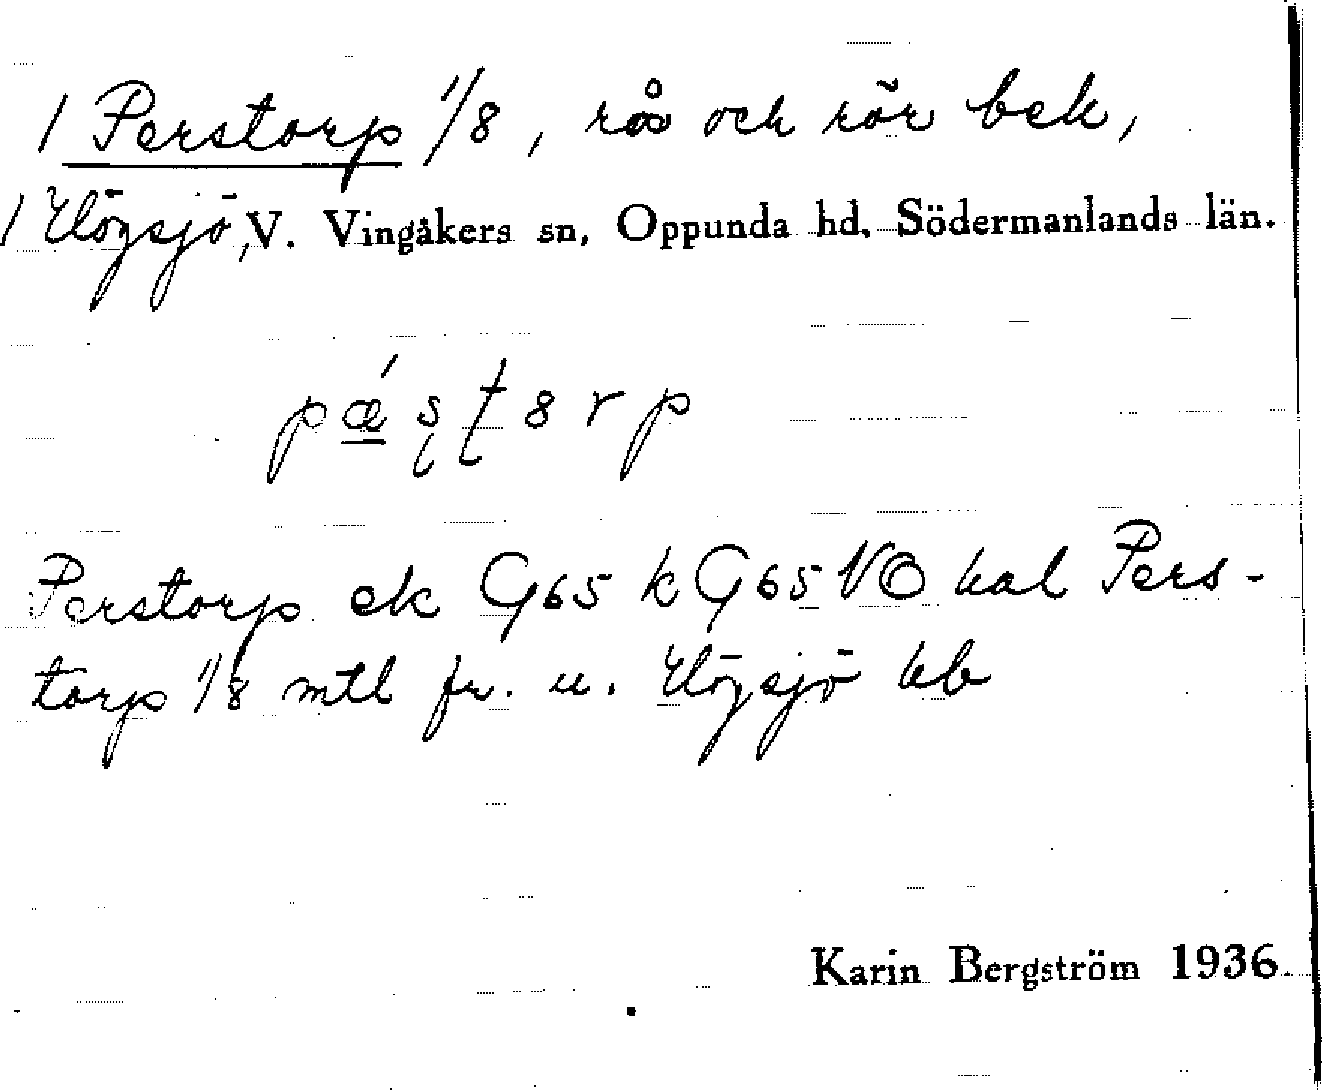 1 Perstorp 1/8, rå och rör bek,
1 Högsjö, V. Vingåkers sn, Oppunda hd, Södermanlands län.
pǽştɩ8rp
Perstorp ek G65 k G65 VO hal Pers-
torp 1/8 mtl fr. u. Högsjö kb
Karin Bergström 1936.